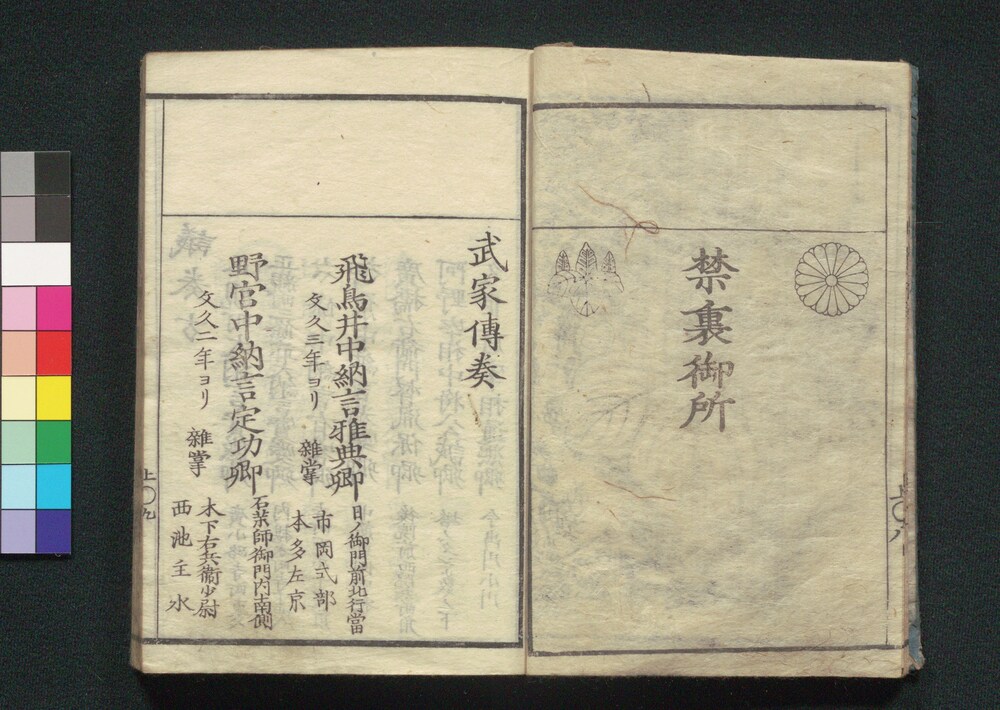 禁裏御所
武家傳奏
飛鳥井中納言雅典卿
日ノ御門前北行當
文久三年ヨリ
雑掌
市岡式部
本多左京
野宮中納言定功卿
石薬師御門内南側
文久二年ヨリ
雜掌
木下右兵衞少尉
西池主水
上〇九